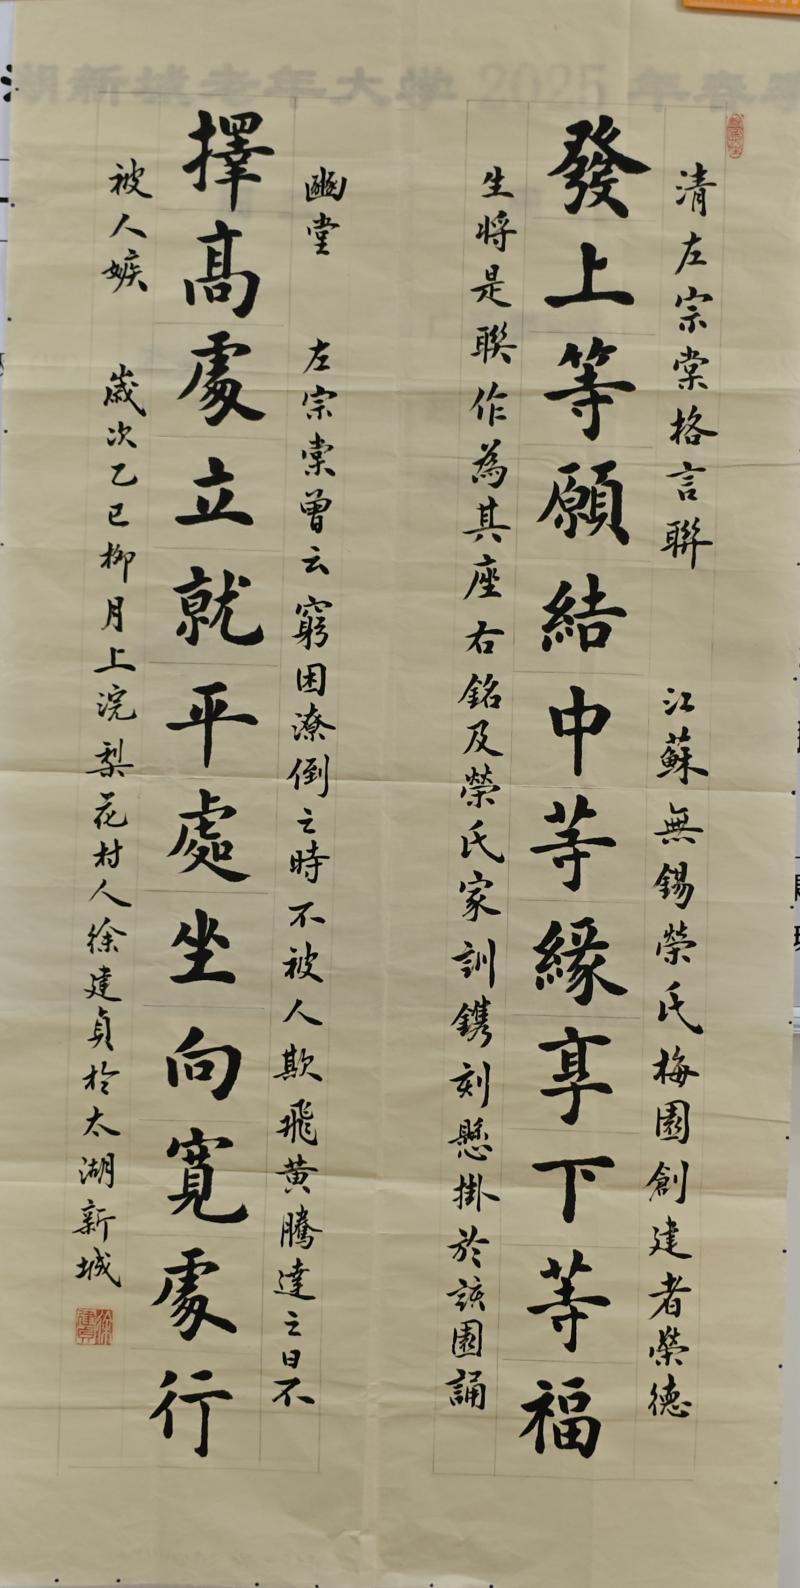 湖新城老年大学 2025 年春季
清左宗棠格言聯　江蘇無錫榮氏梅園創建者榮德
發上等願結中等緣享下等福
生將是聯作為其座右銘及榮氏家訓鐫刻懸掛於該園誦
豳堂　左宗棠曾云窮困潦倒之時不被人欺飛黃騰達之日不
擇高處立就平處坐向寬處行
被人嫉　歲次乙巳柳月上浣梨花村人徐建貞於太湖新城
徐建貞